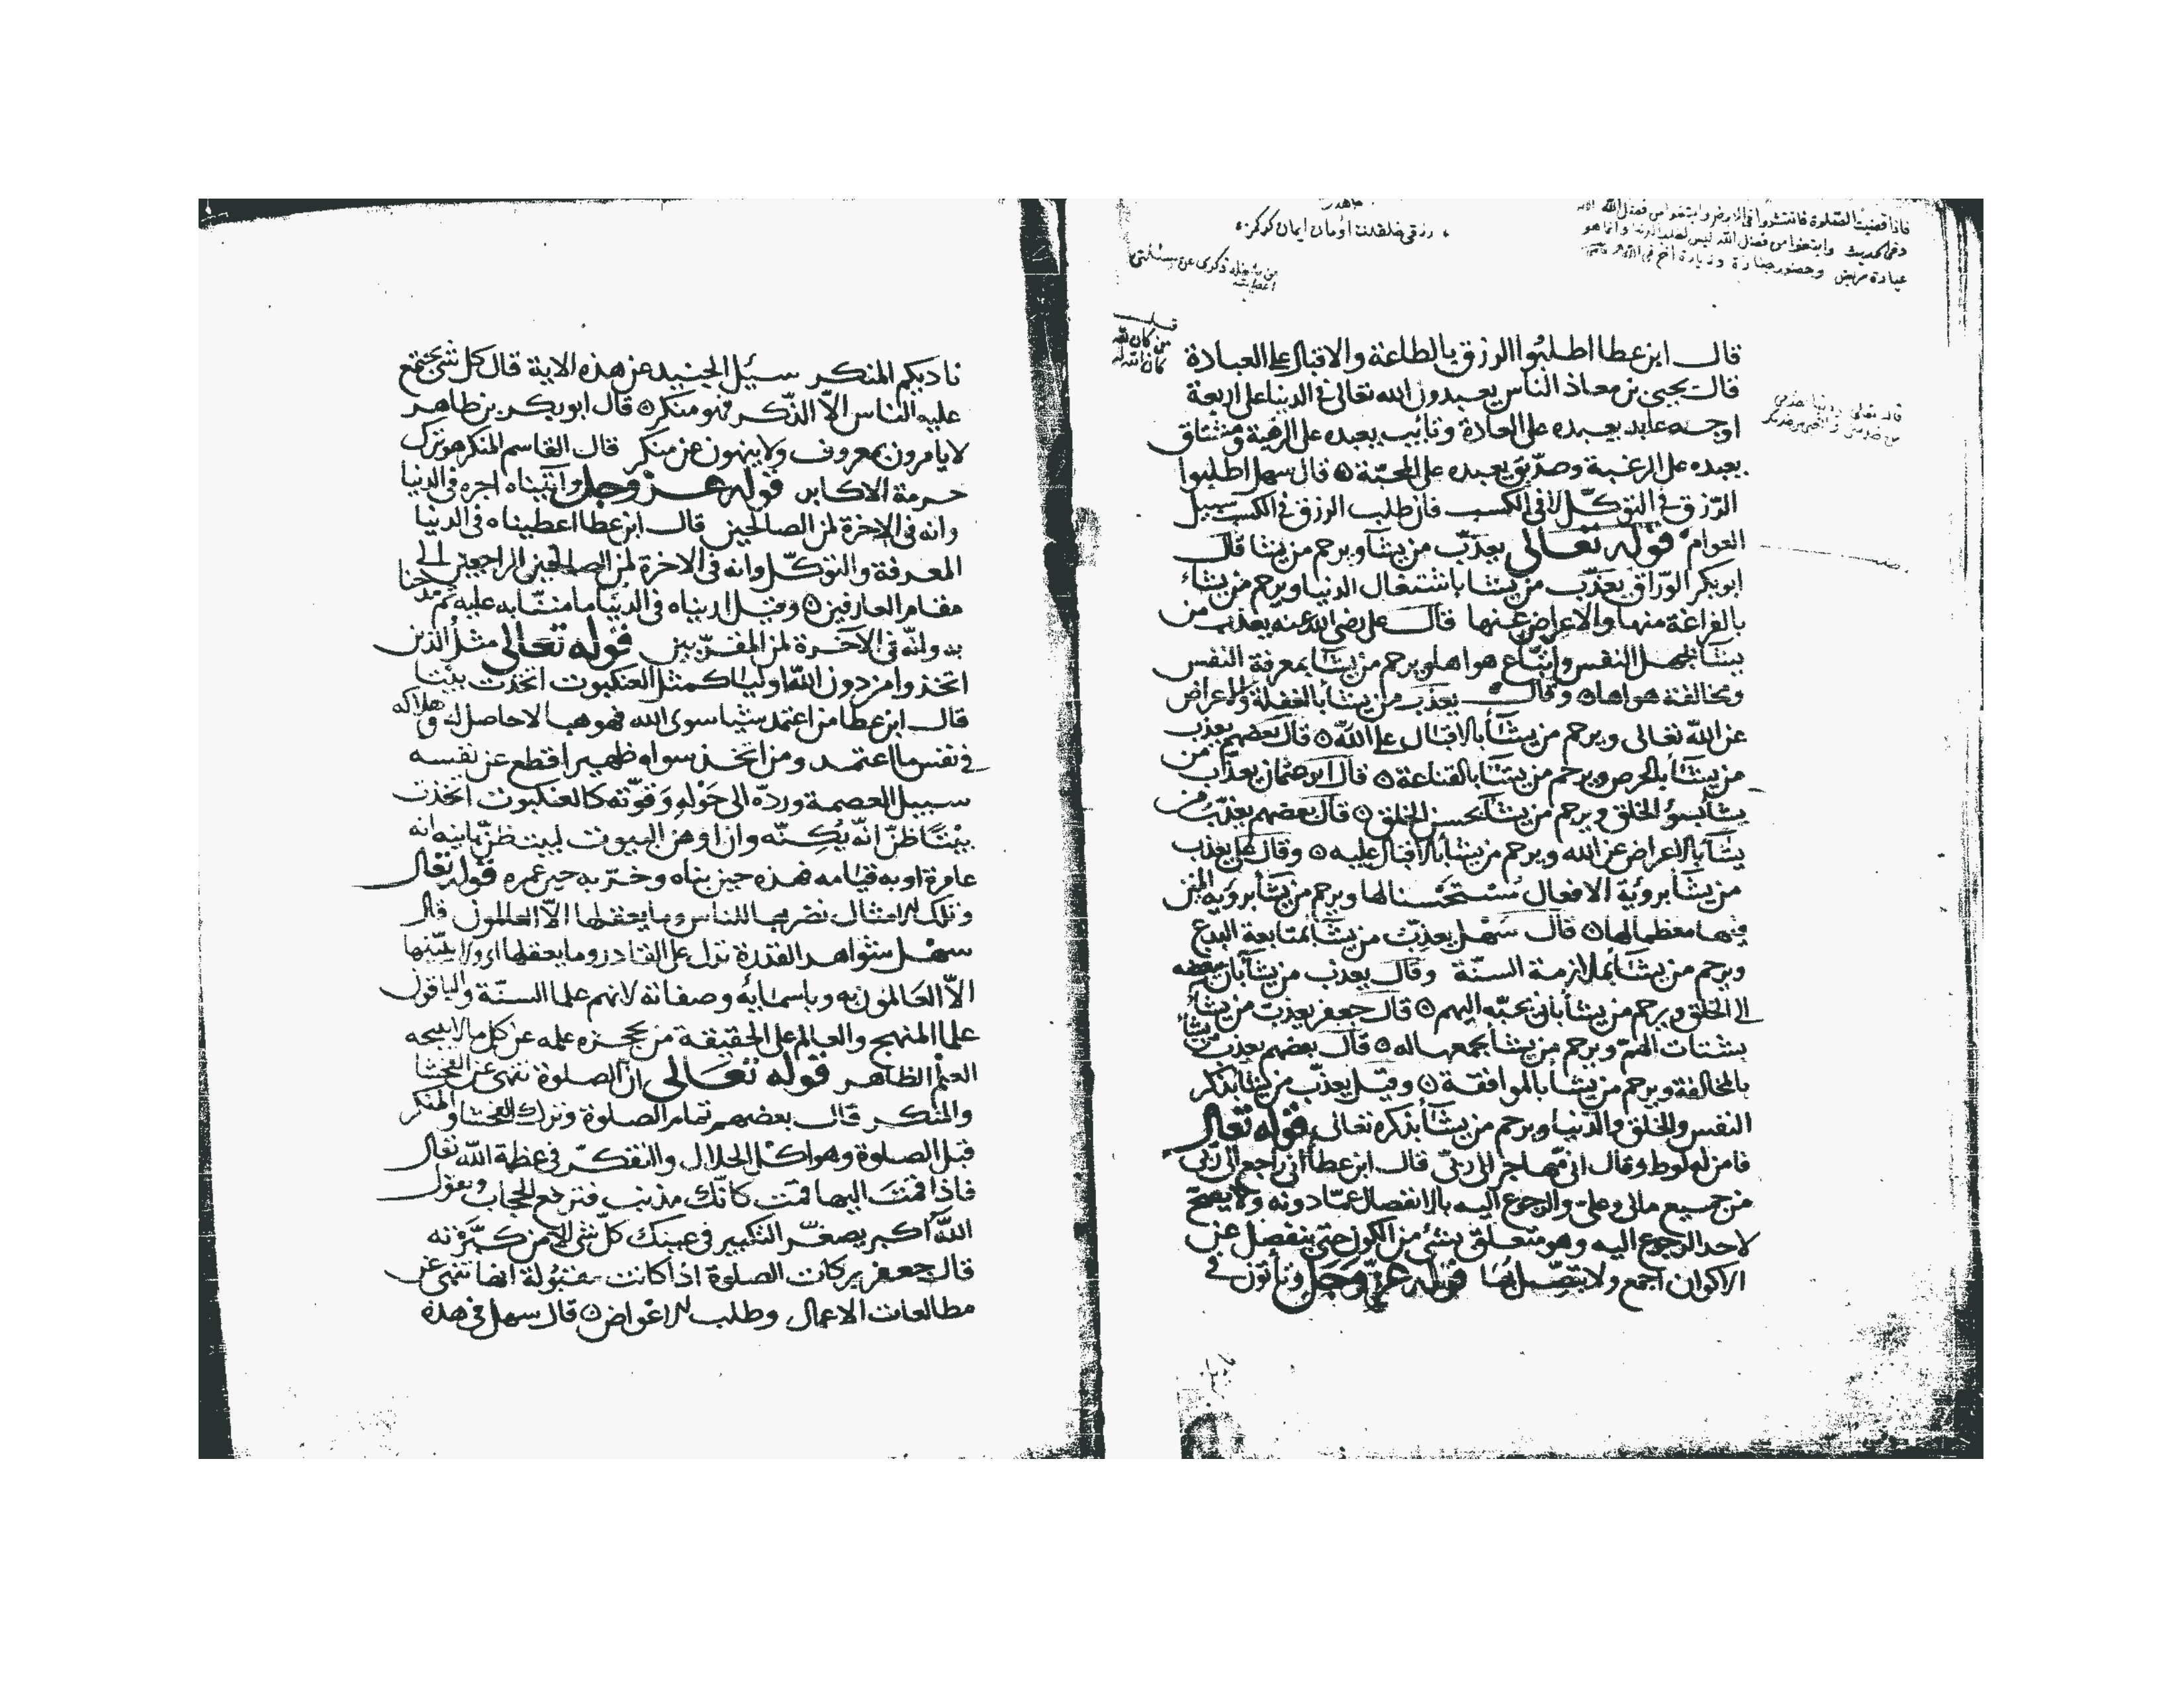 فاذا قضيت الصلوة فانتشروا في الارض وابتغوا من فضل الله
وفي الحديث وابتغوا من فضل الله ليس لطلب الدنيا وانما هو
عيادة مريض وحضور جنازة وزيارة اخ في الله
من شغله ذكرى عن مسئلتى
اعطيته
من كان لله
كان الله له
قال ابن عطا اطلبوا الرزق بالطاعة والاقبال على العبادة
قال يحيى بن معاذ الناس يعبدون الله تعالى فى الدنيا على اربعة
اوجه عابد يعبده على العادة وتائب يعبده على الرهبة ومشتاق
يعبده على الرغبة وصدّيق يعبده على المحبّة ٥ قال سهل اطلبوا
الرّزق فى التوكّل لا فى الكسب فان طلب الرزق فى الكسب سبيل
العوام قوله تعالى يعذّب من يشا ويرحم من يشا قال
ابو بكر الورّاق يعذّب من يشا باشتغال الدنيا ويرحم من يشاء
بالفراغة منها والاعراض عنها قال على رضى الله عنه يعذب من
يشا بجهل النفس واتباع هواها ويرحم من يشا بمعرفة النفس
ومخالفة هواها ٥ وقال يعذب من يشا بالغفلة والاعراض
عن الله تعالى ويرحم من يشا بالاقبال على الله ٥ قال بعضهم يعذب
من يشا بالحرص ويرحم من يشا بالقناعة ٥ قال ابو عثمان يعذب من
يشا بسوء الخلق ويرحم من يشا بحسن الخلق ٥ قال بعضهم يعذّب من
يشا بالاعراض عن الله ويرحم من يشا بالاقبال عليه ٥ وقال على يعذب
من يشا بروية الافعال مستحسنا لها ويرحم من يشا بروية المنن
فيها معظما لها ٥ قال سهل يعذب من يشا بمتابعة البدع
ويرحم من يشا بملازمة السنّة وقال يعذب من يشا بان يبغضه
الى الخلق ويرحم من يشا بان يحبّه اليهم ٥ قال جعفر يعذب من يشا
بشتات الهمّ ويرحم من يشا بجمعها له ٥ قال بعضهم يعذب من يشا
بالمخالفة ويرحم من يشا بالموافقة ٥ وقيل يعذّب من يشا بذكر
النفس والخلق والدّنيا ويرحم من يشا بذكره تعالى قوله تعالى
فامن له لوط وقال انى مهاجر الى ربّى قال ابن عطا انى راجع الى ربّى
من جميع مالى وعلىّ والرجوع اليه بالانفصال عمّا دونه ولا يصحّ
لاحد الرجوع اليه وهو متعلّق بشئ من الكون حتى ينفصل عن
الاكوان اجمع ولا يتصّل بها قوله عزّ وجل وتاتون فى
ناديكم المنكر سيئل الجنيد عن هذه الاية قال كل شئ يجتمع
عليه الناس الّا الذّكر فهو منكر ٥ قال ابو بكر بن طاهر
لا يامرون بمعروف ولا ينهون عن منكر قال القاسم المنكر هو ترك
حرمة الاكابر قوله عز وجل واتيناه اجره فى الدنيا
وانه فى الاخرة لمن الصالحين قال ابن عطا اعطيناه فى الدنيا
المعرفة والتوكّل وانه فى الاخرة لمن الصالحين الراجعين الى
مقام العارفين ٥ وقيل
وانّه فى الاخرة لمن المقرّبين قوله تعالى مثل الذين
اتخذوا من دون الله اوليا كمثل العنكبوت اتخذت بيتا
قال ابن عطا من اعتمد شيا سوى الله فهو هبا لا حاصل له وهلاكه
فى نفس ما اعتمد ومن اتخذ سواه ظهيرا قطع عن نفسه
سبيل العصمة وردّه الى حوله وقوّته كالعنكبوت اتخذت
بيتًا ظنّ انّه يُكِنّه وان اوهن البيوت لبيت ظنّ بانيه انه
عامرة او به قيامه فهذه حين بناه وخرّبه حين عمره قوله تعالى
وتلك الامثال نضربها للناس وما يعقلها الّا العالمون قال
سهل شواهد القدرة تدل على القادر وما يعقلها
الّا العالمون به وباسمائه وصفاته لانهم علما السنّة والباقون
علما المنهج والعالم على الحقيقة من يحجزه علمه عن كل ما لا يبيحه
العلم الظاهر قوله تعالى ان الصلوة تنهى عن الفحشا
والمنكر قال بعضهم تمام الصلوة وترك الفحشا والمنكر
قبل الصلوة وهو اكل الحلال والتفكّر فى عظمة الله تعالى
فاذا قمت اليها قمت كانّك مذنب فترفع الحجاب وتقول
الله اكبر يصغّر التكبير فى عينك كلّ شئ الا من كبّرته
قال جعفر بركات الصلوة اذا كانت مقبولة انها تنهى عن
مطالعات الاعمال وطلب الاعواض ٥ قال سهل فى هذه